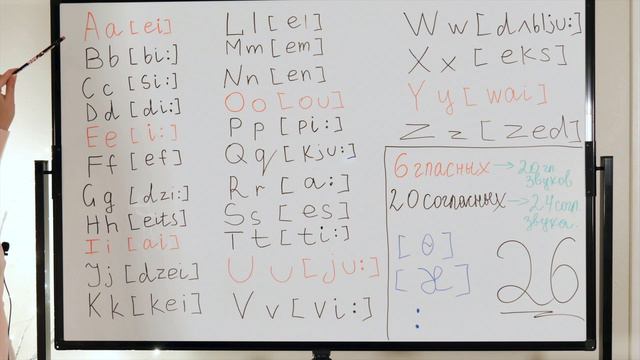 Aa [ei]
Bb [bi:]
Cc [si:]
Dd [di:]
Ee [i:]
Ff [ef]
Gg [dzi:]
Hh [eits]
Ii [ai]
Jj [dzei]
Kk [kei]
Ll [el]
Mm [em]
Nn [en]
Oo [ou]
Pp [pi:]
Qq [kju:]
Rr [a:]
Ss [es]
Tt [ti:]
Uu [ju:]
Vv [vi:]
Ww [dʌblju:]
Xx [eks]
Yy [wai]
Zz [zed]
6 гласных → 20 гл звуков
20 согласных → 24 согл. звука.
[θ]
[æ]
:
26